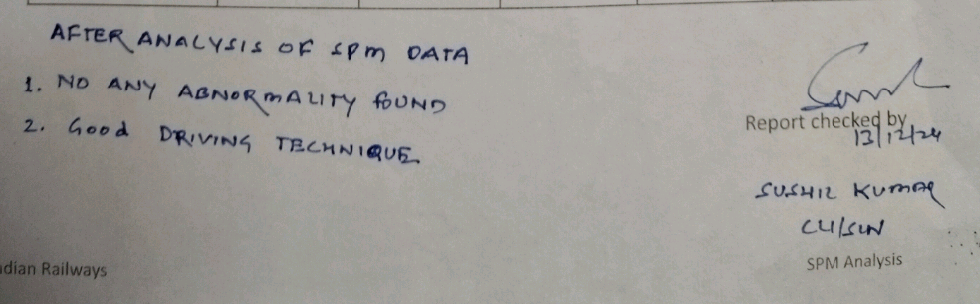 AFTER ANALYSIS OF SPM DATA
1. NO ANY ABNORMALITY FOUND
2. Good DRIVING TECHNIQUE
Report checked by
13/12/24
SUSHIL KUMAR
CLI/SLN
SPM Analysis
dian Railways